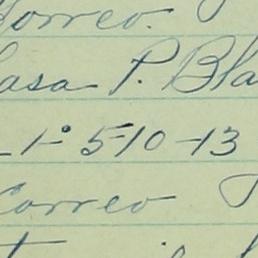 Correo.
Casa P. Bla
1º 5-10-13
Correo